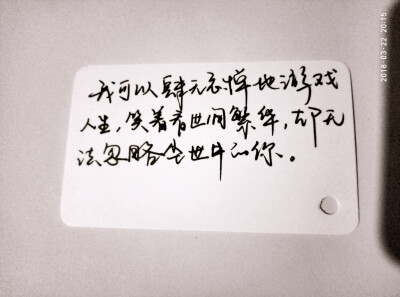 我可以肆无忌惮地游戏
人生,笑着看世间繁华,却无
法忽略尘世中的你。
2018-03-22 20:15